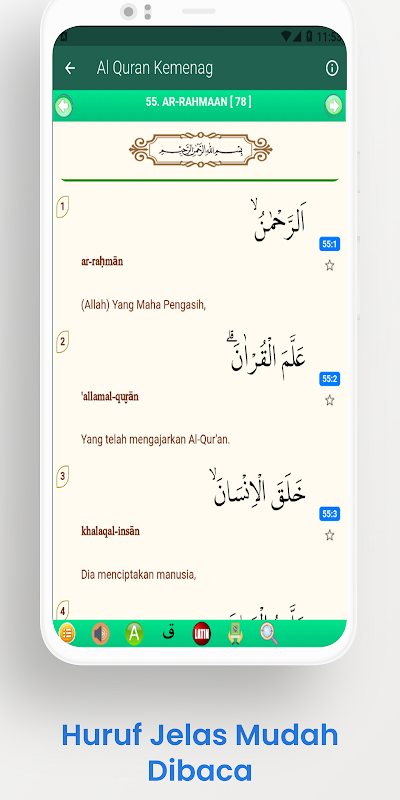 11:53
Al Quran Kemenag
55. AR-RAHMAAN [ 78 ]
بِسْمِ اللّٰهِ الرَّحْمٰنِ الرَّحِيْمِ
1
اَلرَّحْمٰنُۙ
55:1
ar-raḥmān
(Allah) Yang Maha Pengasih,
2
عَلَّمَ الْقُرْاٰنَۗ
55:2
'allamal-qur̤ān
Yang telah mengajarkan Al-Qur'an.
3
خَلَقَ الْاِنْسَانَۙ
55:3
khalaqal-insān
Dia menciptakan manusia,
4
A
ق
LATIN
Huruf Jelas Mudah
Dibaca